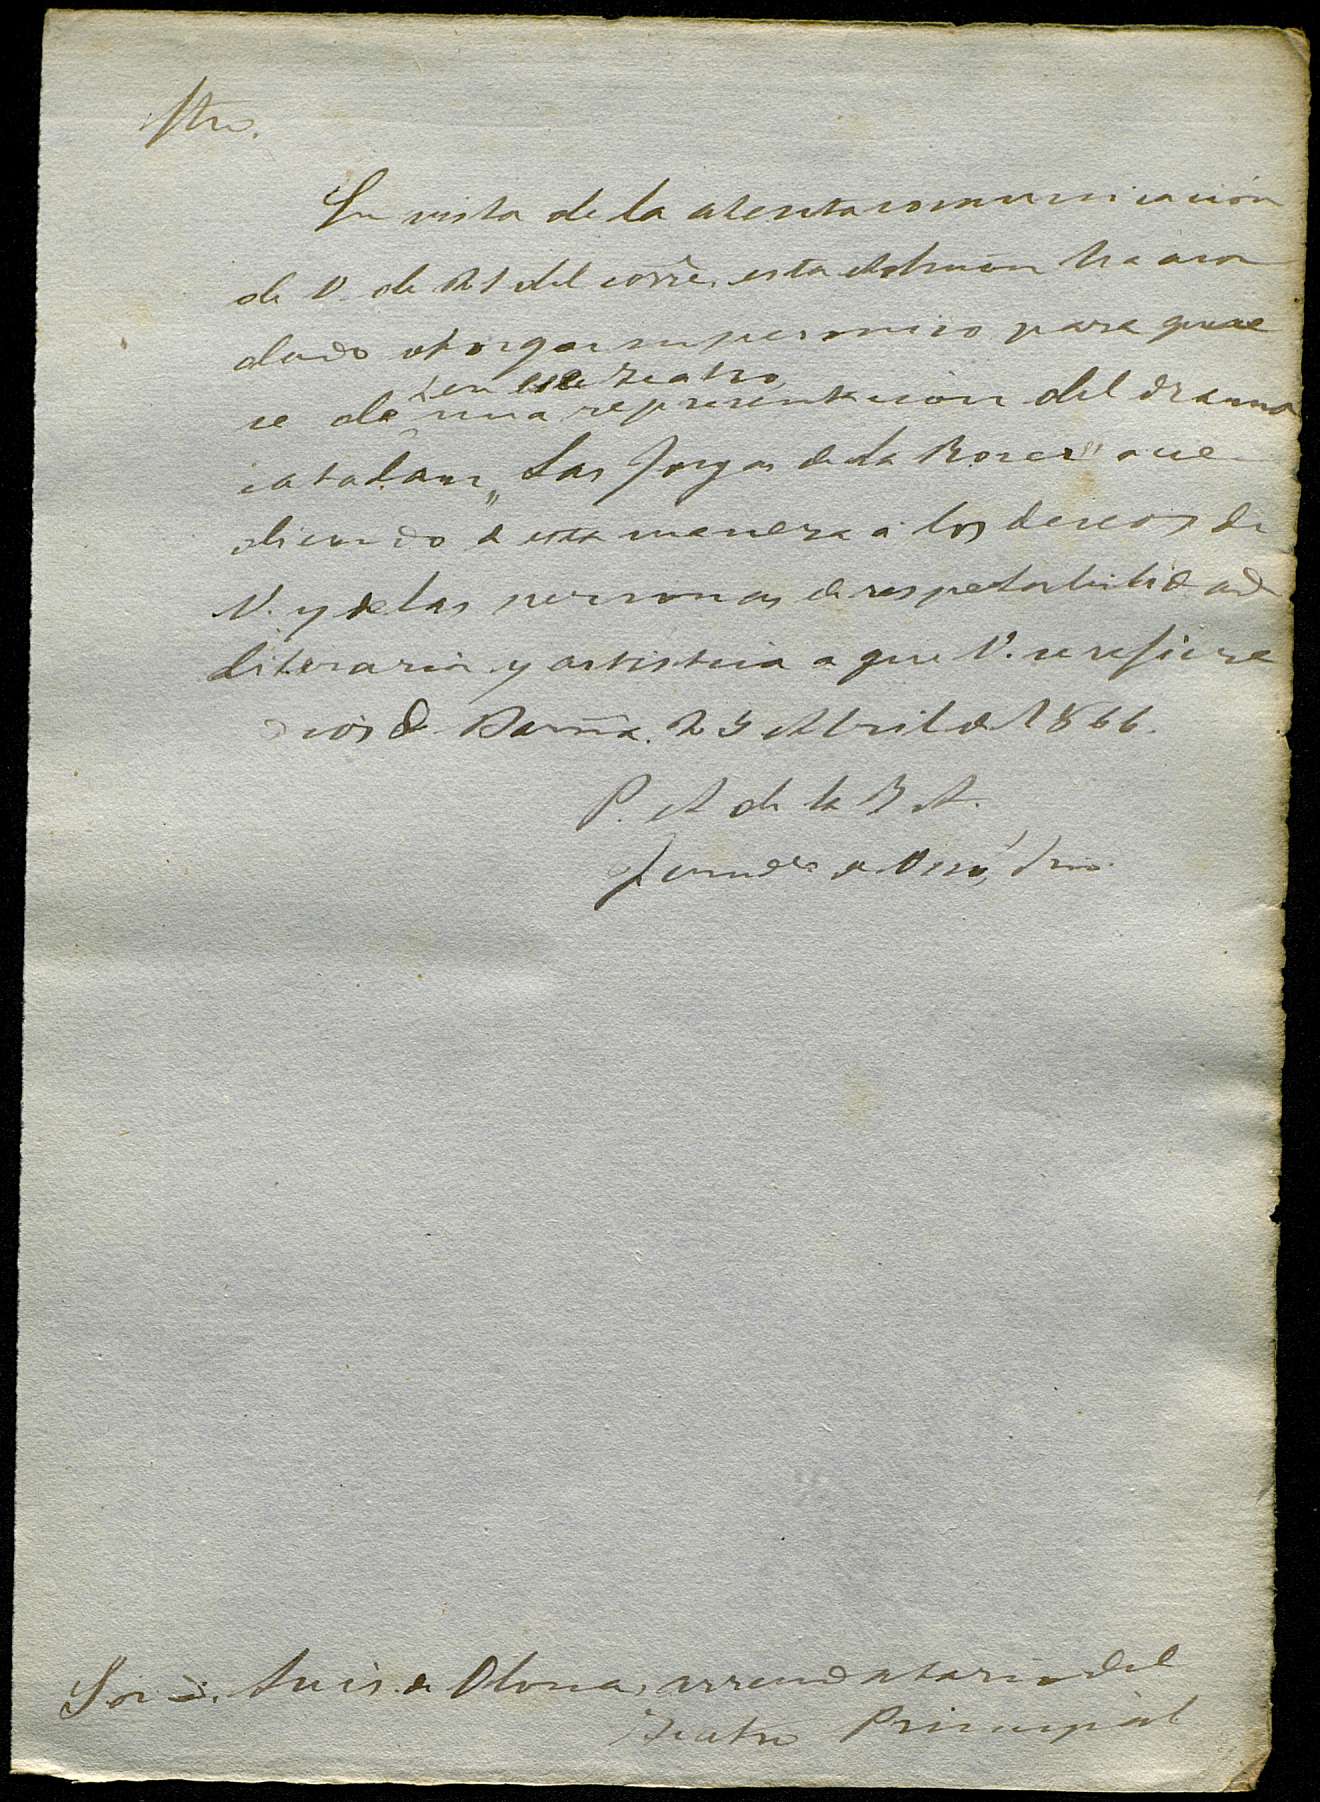 En vista de la atenta comunicación
de V. de 21 del corrte. esta admon. ha acor
dado otorgar su permiso para que
en este teatro
se dé una representacion del drama
catalan "Las Joyas de la Roser" acce
diendo de esta manera á los deseos de
V. y de las personas de respetabilidad
literaria y artistica a que V. se refiere
Dios &. Barña. 23 Abril de 1866.
P. A de la J A.
Sor D. Luis de Olona, arrendatario del
Teatro Principal